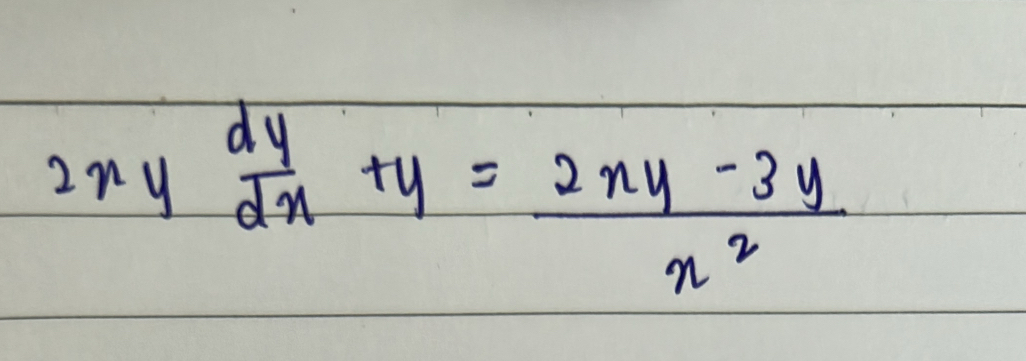 2xy dy/dx + y = (2xy - 3y)/x²